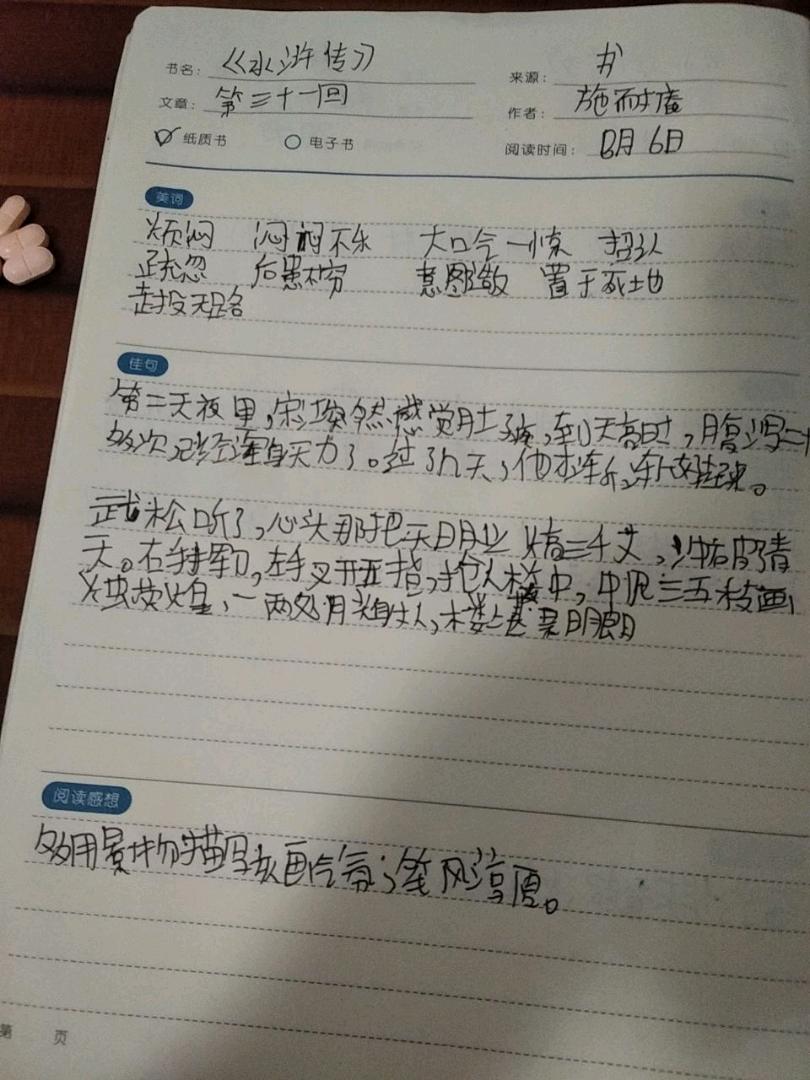 书名：《水浒传》
来源：书
文章：第三十一回
作者：施耐庵
纸质书 电子书
阅读时间：8月6日
美词
烦闷 闷闷不乐 大口气一惊 招认
疏忽 后患不穷 意图造散 置于死地
走投无路
佳句
第二天夜里，宋江突然感觉肚子疼，到天亮时，腹泻二十
多次，已经浑身无力了。过了几天，他才渐渐好起来。
武松听了，心头那把无明业火高三千丈，冲破了青
天。右手持刀，左手叉开五指，抢入楼中，三五枝画
烛荧煌，一两处月光射入，楼上甚是明朗
阅读感想
多用景物描写刻画气氛，笔风淳厚。
第 页